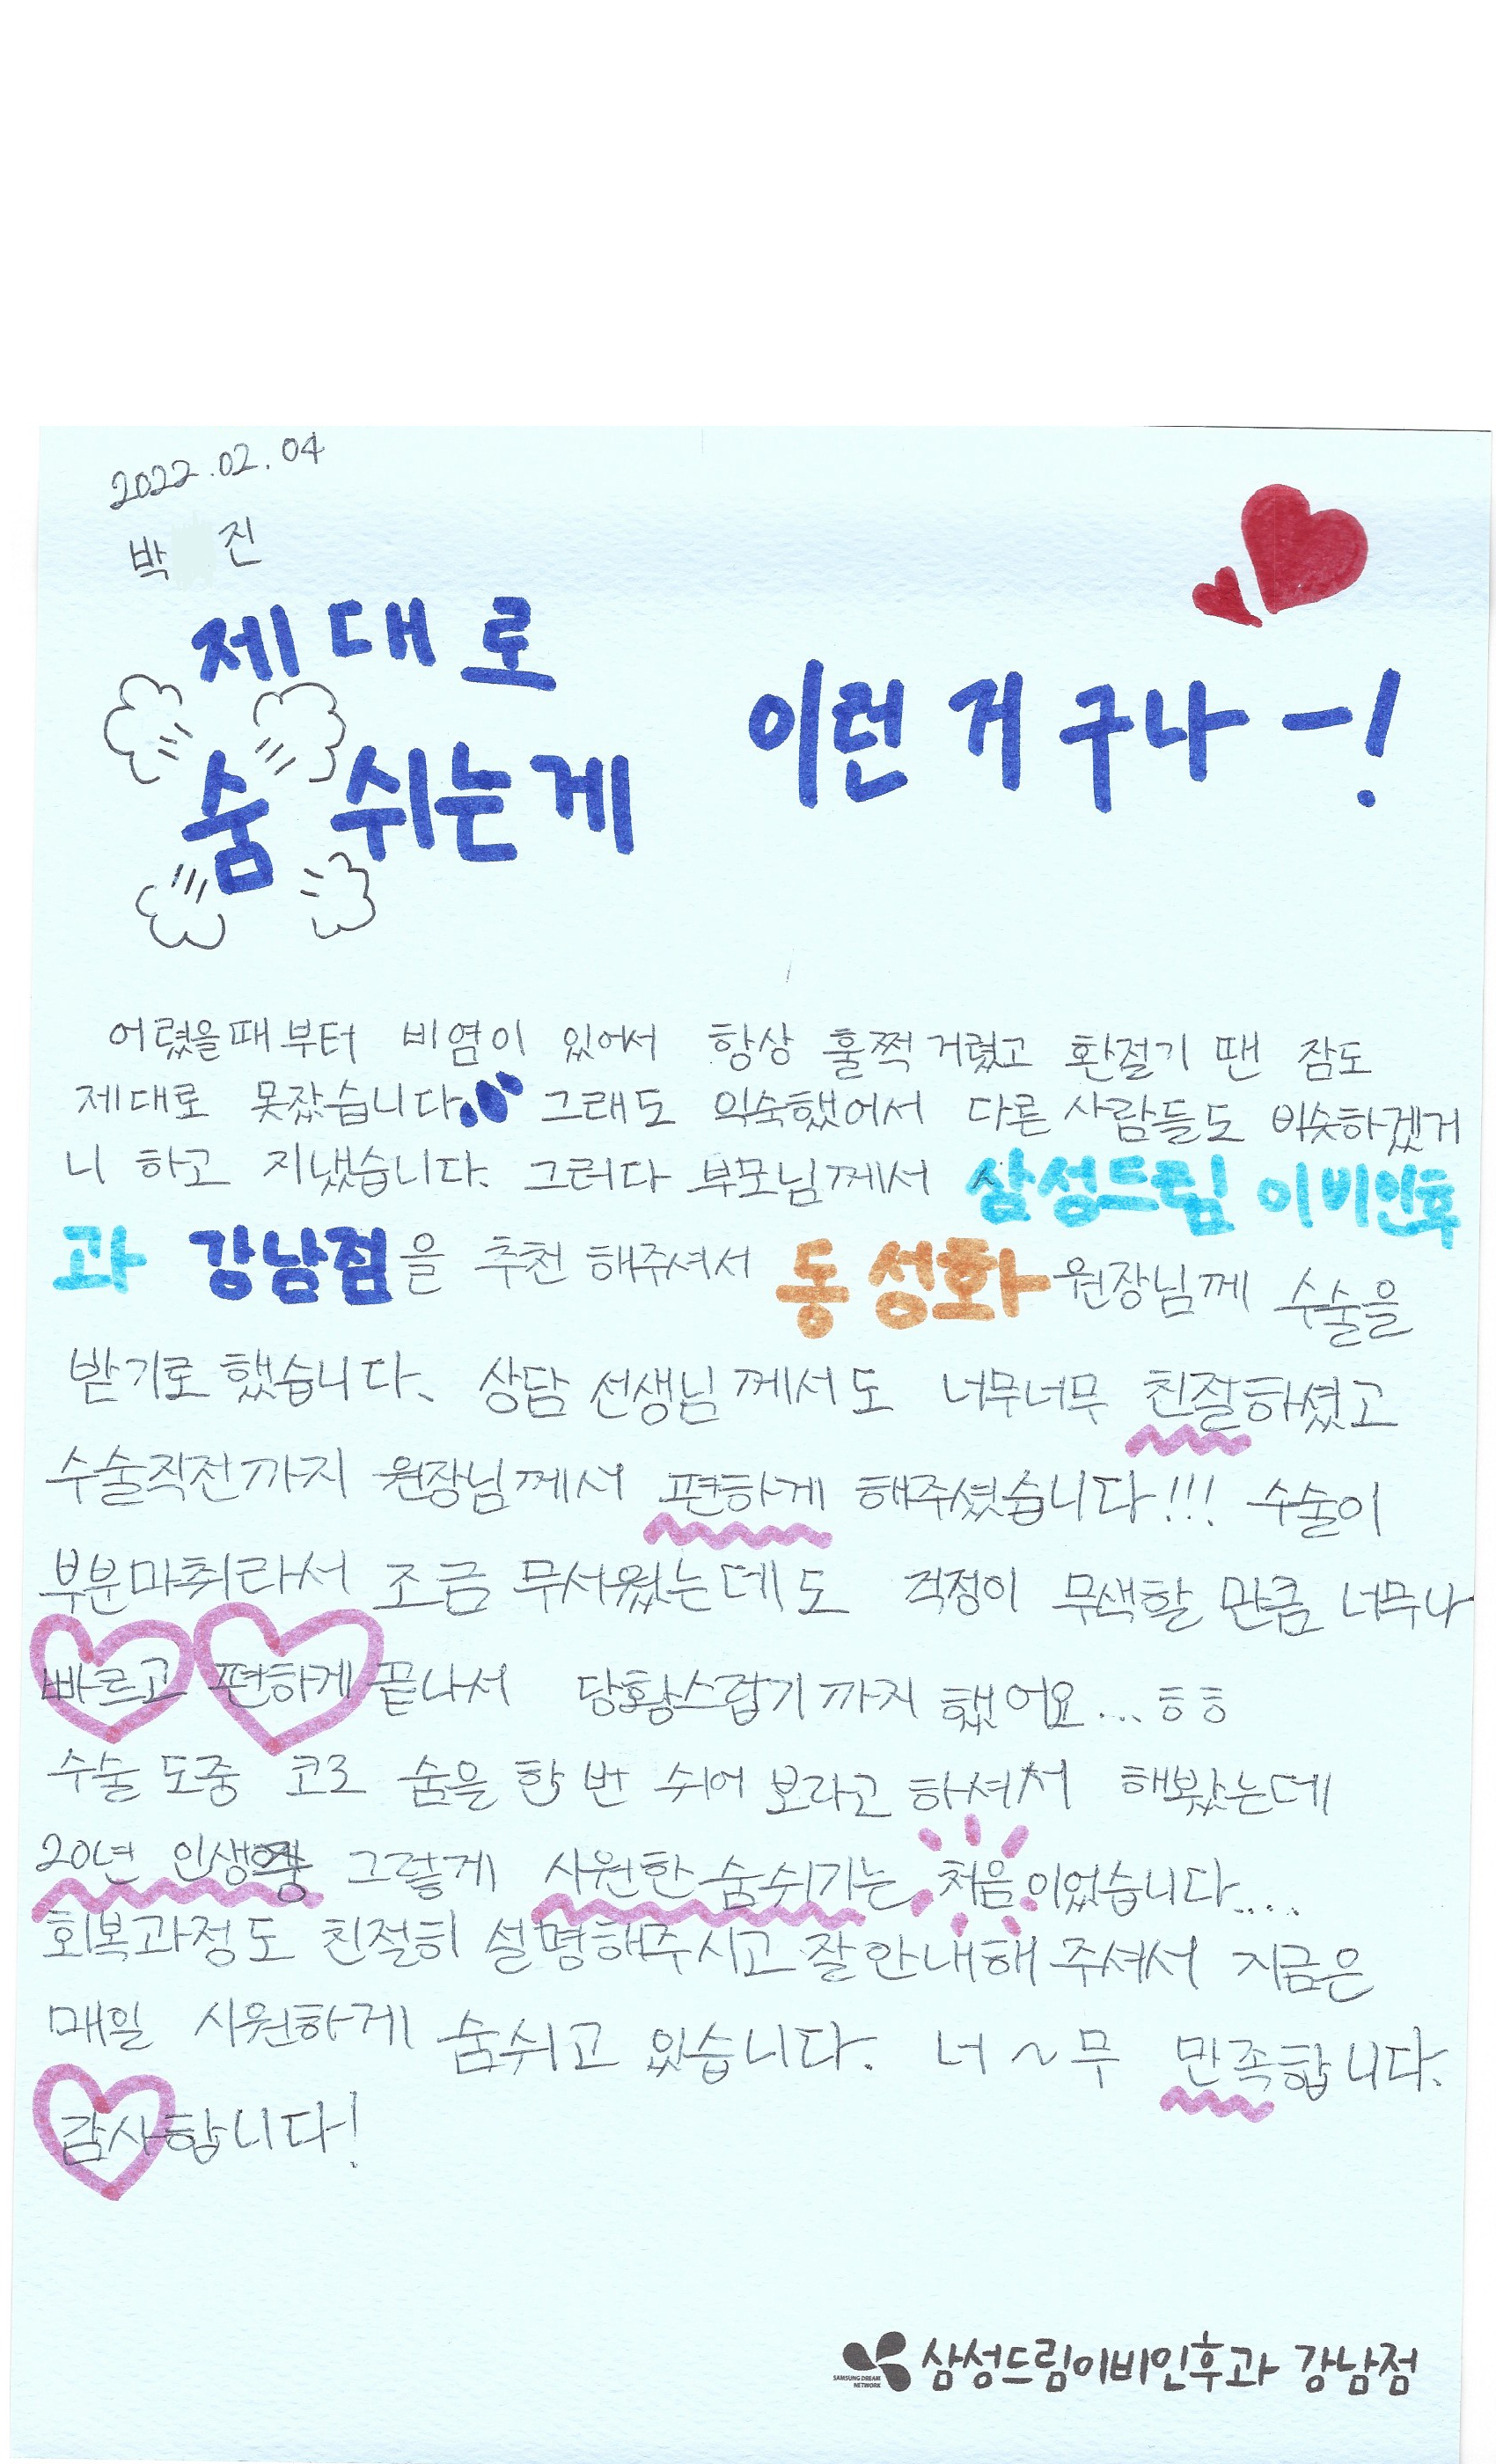 2022.02.04
박 진
제대로
숨 쉬는게 이런 거 구나 - !
어렸을때부터 비염이 있어서 항상 훌쩍 거렸고 환절기 땐 잠도
제대로 못잤습니다. 그래도 익숙했어서 다른 사람들도 비슷하겠거
니 하고 지냈습니다. 그러다 부모님께서 삼성드림 이비인후
과 강남점을 추천 해주셔서 동성화 원장님께 수술을
받기로 했습니다. 상담 선생님께서도 너무너무 친절하셨고
수술직전까지 원장님께서 편하게 해주셨습니다!!! 수술이
부분마취라서 조금 무서웠는데도 걱정이 무색할 만큼 너무나
빠르고 편하게 끝나서 당황스럽기까지 했어요...ㅎㅎ
수술 도중 코로 숨을 한번 쉬어 보라고 하셔서 해봤는데
20년 인생중 그렇게 시원한 숨쉬기는 처음이었습니다....
회복과정도 친절히 설명해주시고 잘 안내해 주셔서 지금은
매일 시원하게 숨쉬고 있습니다. 너~무 만족합니다.
감사합니다!
SAMSUNG DREAM
NETWORK
삼성드림이비인후과 강남점